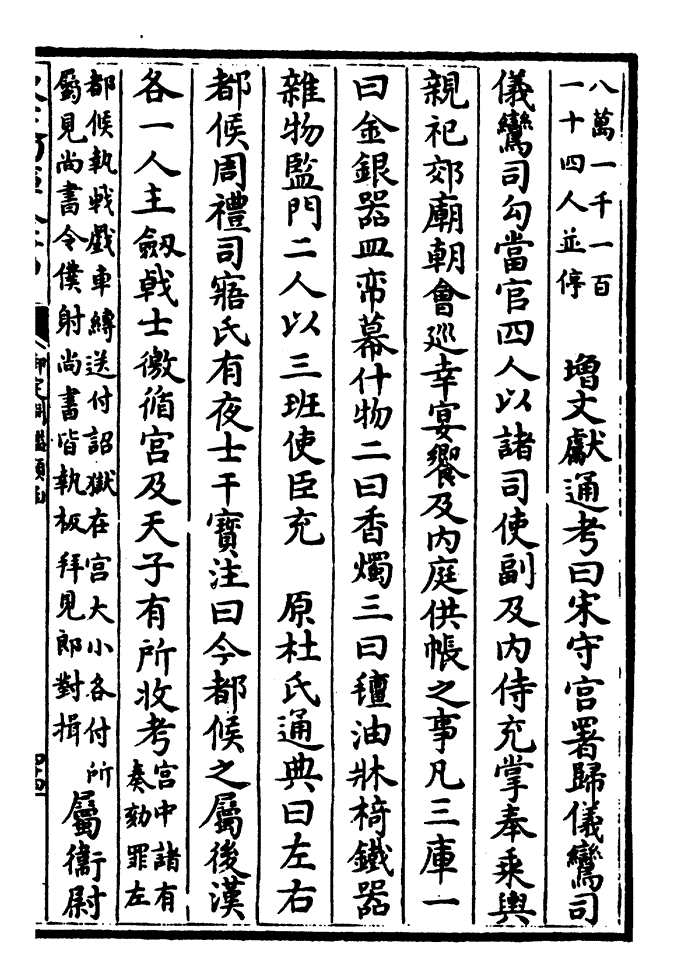 八萬一千一百
一十四人並停
增文獻通考曰宋守宮署歸儀鸞司
儀鸞司勾當官四人以諸司使副及内侍充掌奉乘輿
親祀郊廟朝會巡幸宴饗及内庭供帳之事凡三庫一
曰金銀器皿帟幕什物二曰香燭三曰氊油牀椅鐵器
雜物監門二人以三班使臣充　原杜氏通典曰左右
都候周禮司寤氏有夜士干寳注曰今都候之屬後漢
各一人主劔㦸士徼循宫及天子有所收考
宫中諸有
奏劾罪左
都候執㦸戲車縛送付詔獄在宫大小各付所
屬見尚書令僕射尚書皆執板拜見郎對揖
屬衞尉